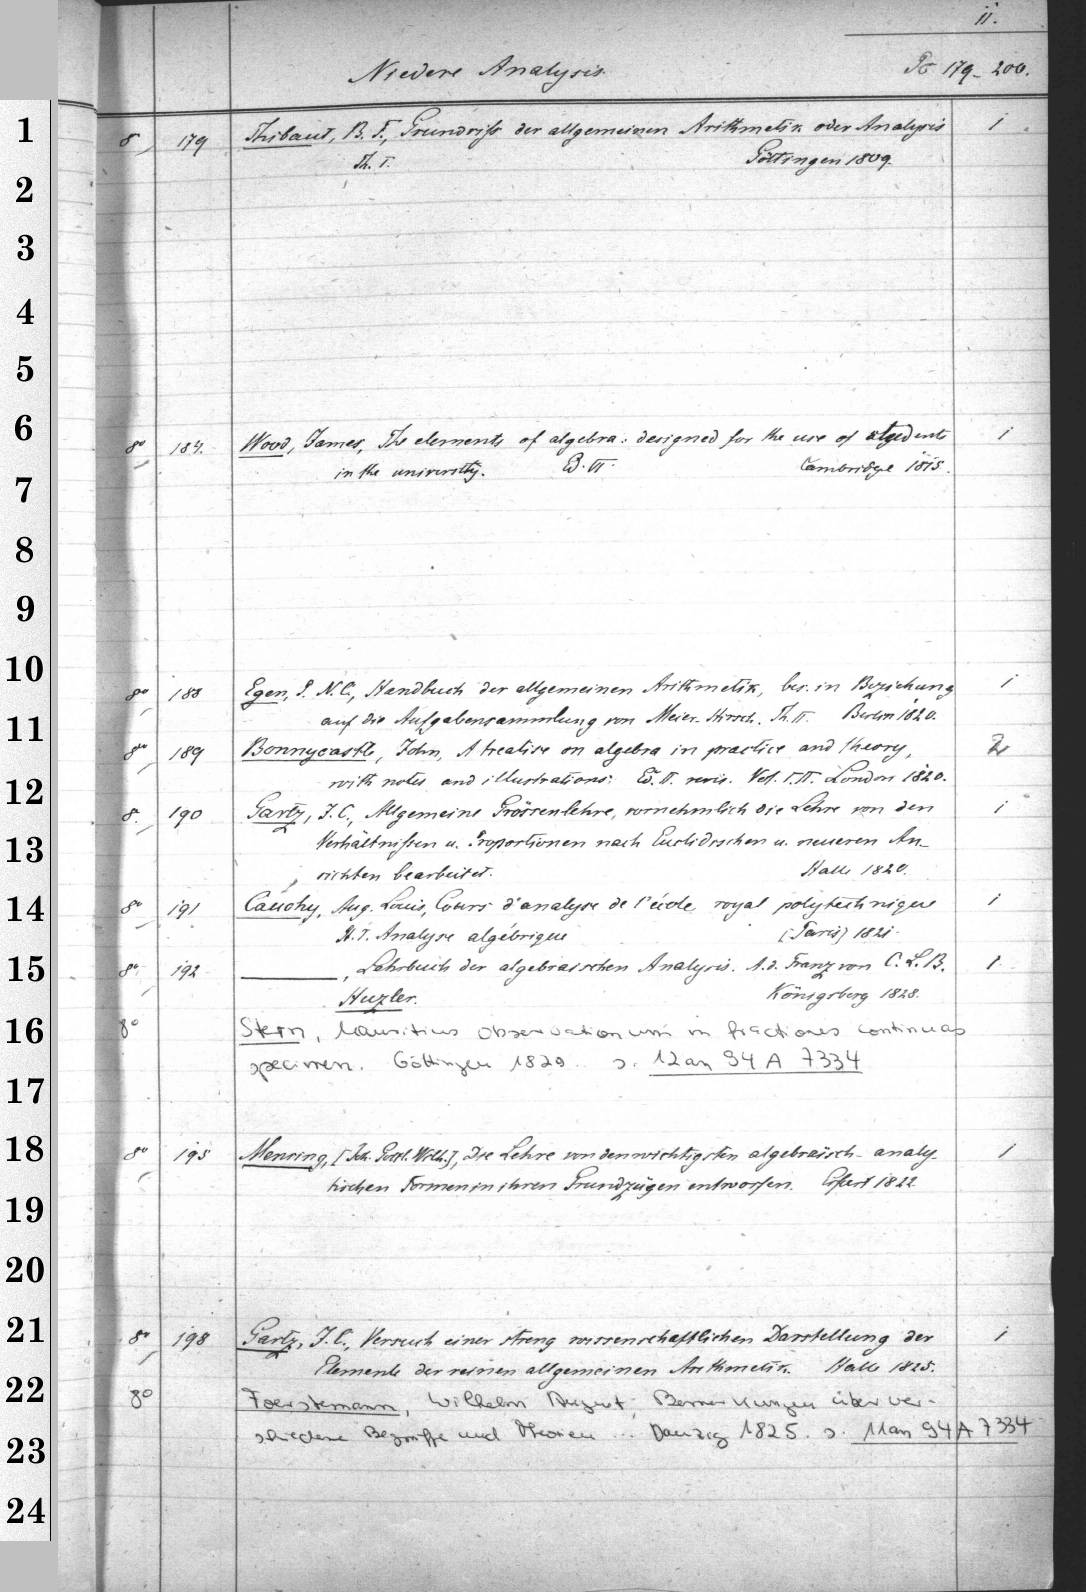 11.
Niedere Analysis
Pb 179-200.
8. 179 Thibaut, B. F., Grundriß der allgemeinen Arithmetik oder Analysis 1
Th. I. Göttingen 1809.
8° 184. Wood, James, The elements of algebra: designed for the use of students 1
in the university. Ed. VI. Cambridge 1815.
8° 188 Egen, P. N. C., Handbuch der allgemeinen Arithmetik, bes. in Beziehung 1
auf die Aufgabensammlung von Meier Hirsch. Th. II. Berlin 1820.
8° 189 Bonnycastle, John, A treatise on algebra in practice and theory, 2
with notes and illustrations: Ed. II. revis. Vol. I. II. London 1820.
8. 190 Gartz, J. C., Allgemeine Grössenlehre, vornehmlich die Lehre von den 1
Verhältnißen u. Proportionen nach Euclidischen u. neueren An-
sichten bearbeitet. Halle 1820.
8° 191 Cauchy, Aug. Louis, Cours d'analyse de l'école royal polytechnique 1
Pt. I. Analyse algébrique [Paris] 1821.
8° 192 ———, Lehrbuch der algebraischen Analysis. A. d. Franz von C. L. B. 1
Huzler. Königsberg 1828.
8° Stern, Mauritius Observationum in fractiones continuas
specimen. Göttingen 1829. s. 12 an 94 A 7334
8° 195 Mensing, [Joh. Gottl. Wilh.], Die Lehre von den wichtigsten algebraisch-analy- 1
tischen Formen in ihren Grundzügen entworfen. Erfurt 1822.
8° 198 Gartz, J. C., Versuch einer streng wissenschaftlichen Darstellung der 1
Elemente der reinen allgemeinen Arithmetik. Halle 1825.
8° Foerstemann, Wilhelm August, Bemerkungen über ver-
schiedene Begriffe und Theorien ... Danzig 1825. s. 11 an 94 A 7334
1
2
3
4
5
6
7
8
9
10
11
12
13
14
15
16
17
18
19
20
21
22
23
24